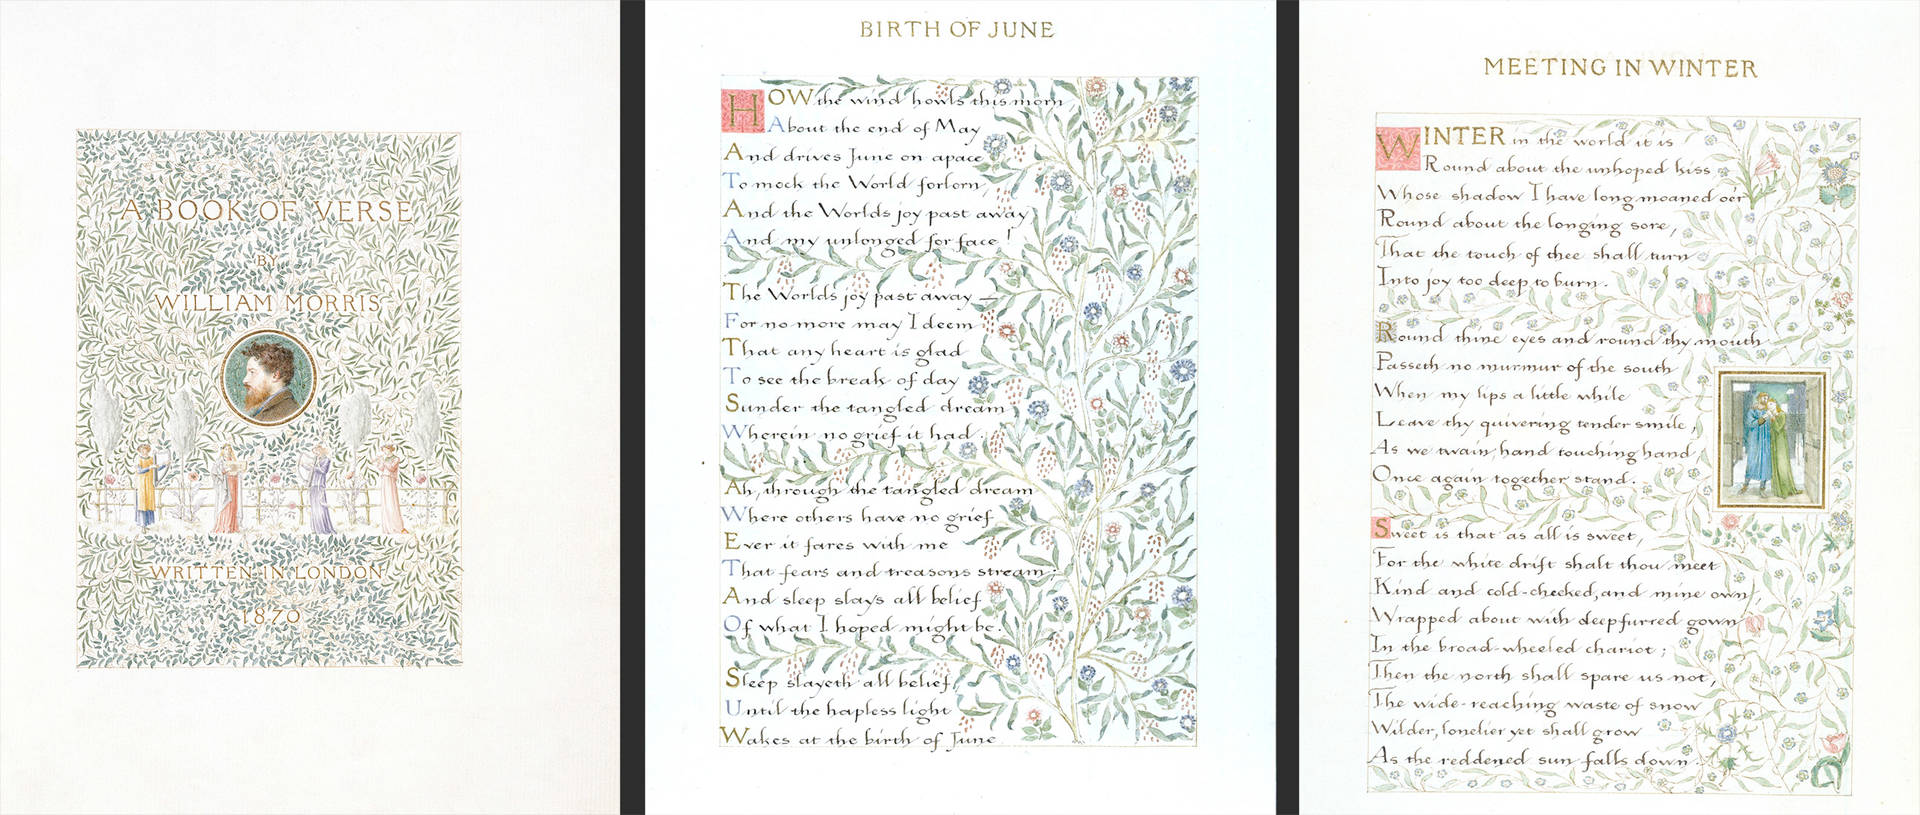 A BOOK OF VERSE
BY
WILLIAM MORRIS
WRITTEN IN LONDON
1870
BIRTH OF JUNE
HOW the wind howls this morn,
About the end of May
And drives June on apace
To mock the World forlorn,
And the Worlds joy past away
And my unlonged for face!
The Worlds joy past away —
For no more may I deem
That any heart is glad
To see the break of day
Sunder the tangled dream
Wherein no grief it had.
Ah, through the tangled dream
Where others have no grief
Ever it fares with me
That fears and treasons stream;
And sleep slays all belief
Of what I hoped might be.
Sleep slayeth all belief,
Until the hapless light
Wakes at the birth of June
MEETING IN WINTER
WINTER in the world it is
Round about the unhoped kiss
Whose shadow I have long moaned oer
Round about the longing sore,
That the touch of thee shall turn
Into joy too deep to burn.
Round thine eyes and round thy mouth
Passeth no murmur of the south
When my lips a little while
Leave thy quivering tender smile,
As we twain, hand touching hand,
Once again together stand.
Sweet is that as all is sweet,
For the white drift shalt thou meet
Kind and cold-cheeked, and mine own,
Wrapped about with deepfurred gown
In the broad-wheeled chariot;
Then the north shall spare us not,
The wide-reaching waste of snow
Wilder, lonelier yet shall grow
As the reddened sun falls down.